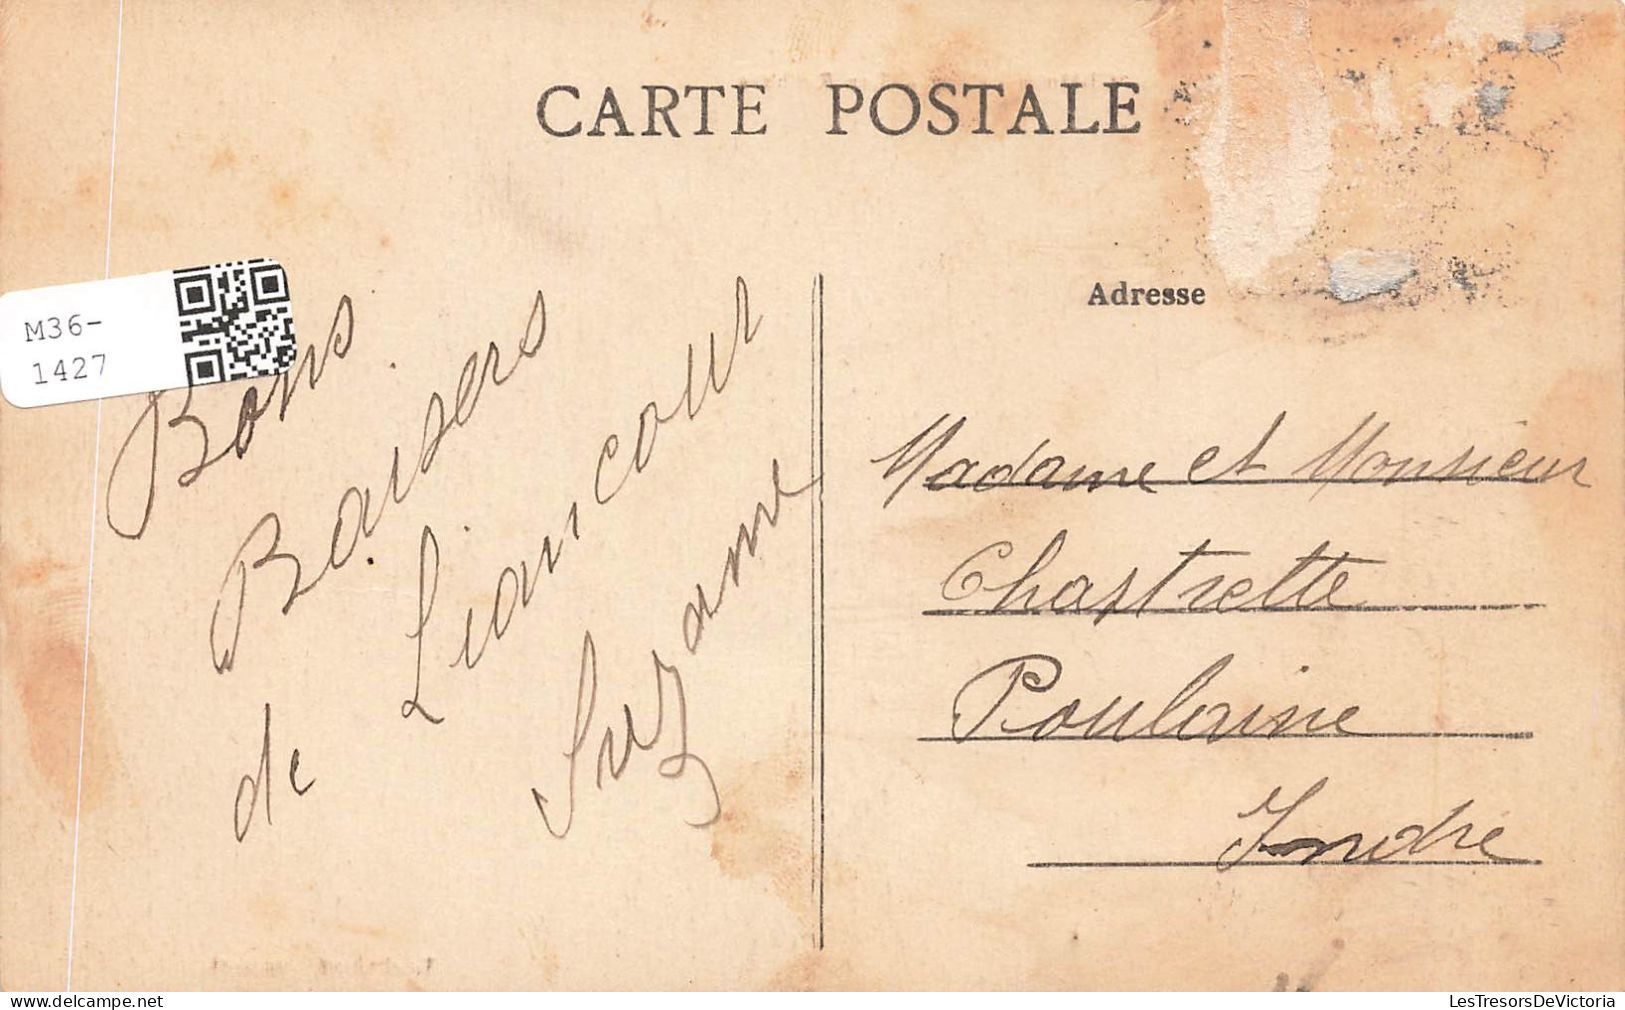 CARTE POSTALE
M36-
1427
Adresse
Bons
Baisers
de Liancour
Suzanne
Madame et Monsieur
Chastrette
Poulaine
Indre
LesTresorsDeVictoria